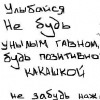 Улыбайся
Не будь
унылым гавном,
будь позитивной
какашкой
не забудь нож